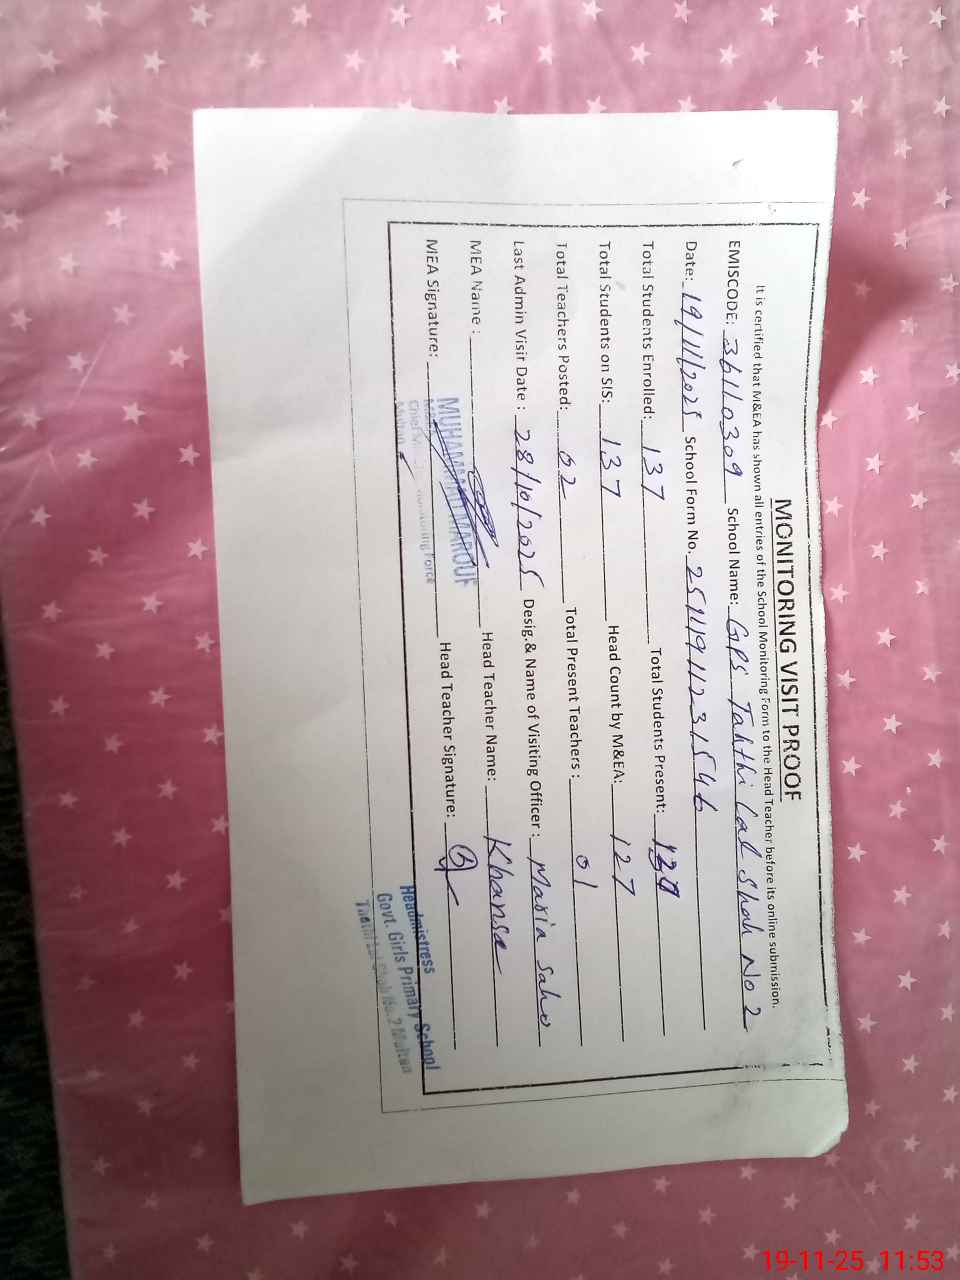 MONITORING VISIT PROOF
It is certified that M&EA has shown all entries of the School Monitoring Form to the Head Teacher before its online submission.
EMISCODE: 36110309 School Name: GPS Tahthi Lal Shah No 2
Date: 19/11/2025 School Form No. 25111911231546
Total Students Enrolled: 137 Total Students Present:
Total Students on SIS: 137 Head Count by M&EA: 127
Total Teachers Posted: 02 Total Present Teachers : 01
Last Admin Visit Date : 28/10/2025 Desig.& Name of Visiting Officer : Maria Saho
MEA Name : Head Teacher Name: Khansa
MEA Signature: Head Teacher Signature:
MUHAMMAD MAROUF
Chief Monitoring Force
Headmistress
Govt. Girls Primary School
Lal Shah No.2 Multan
19-11-25 11:53